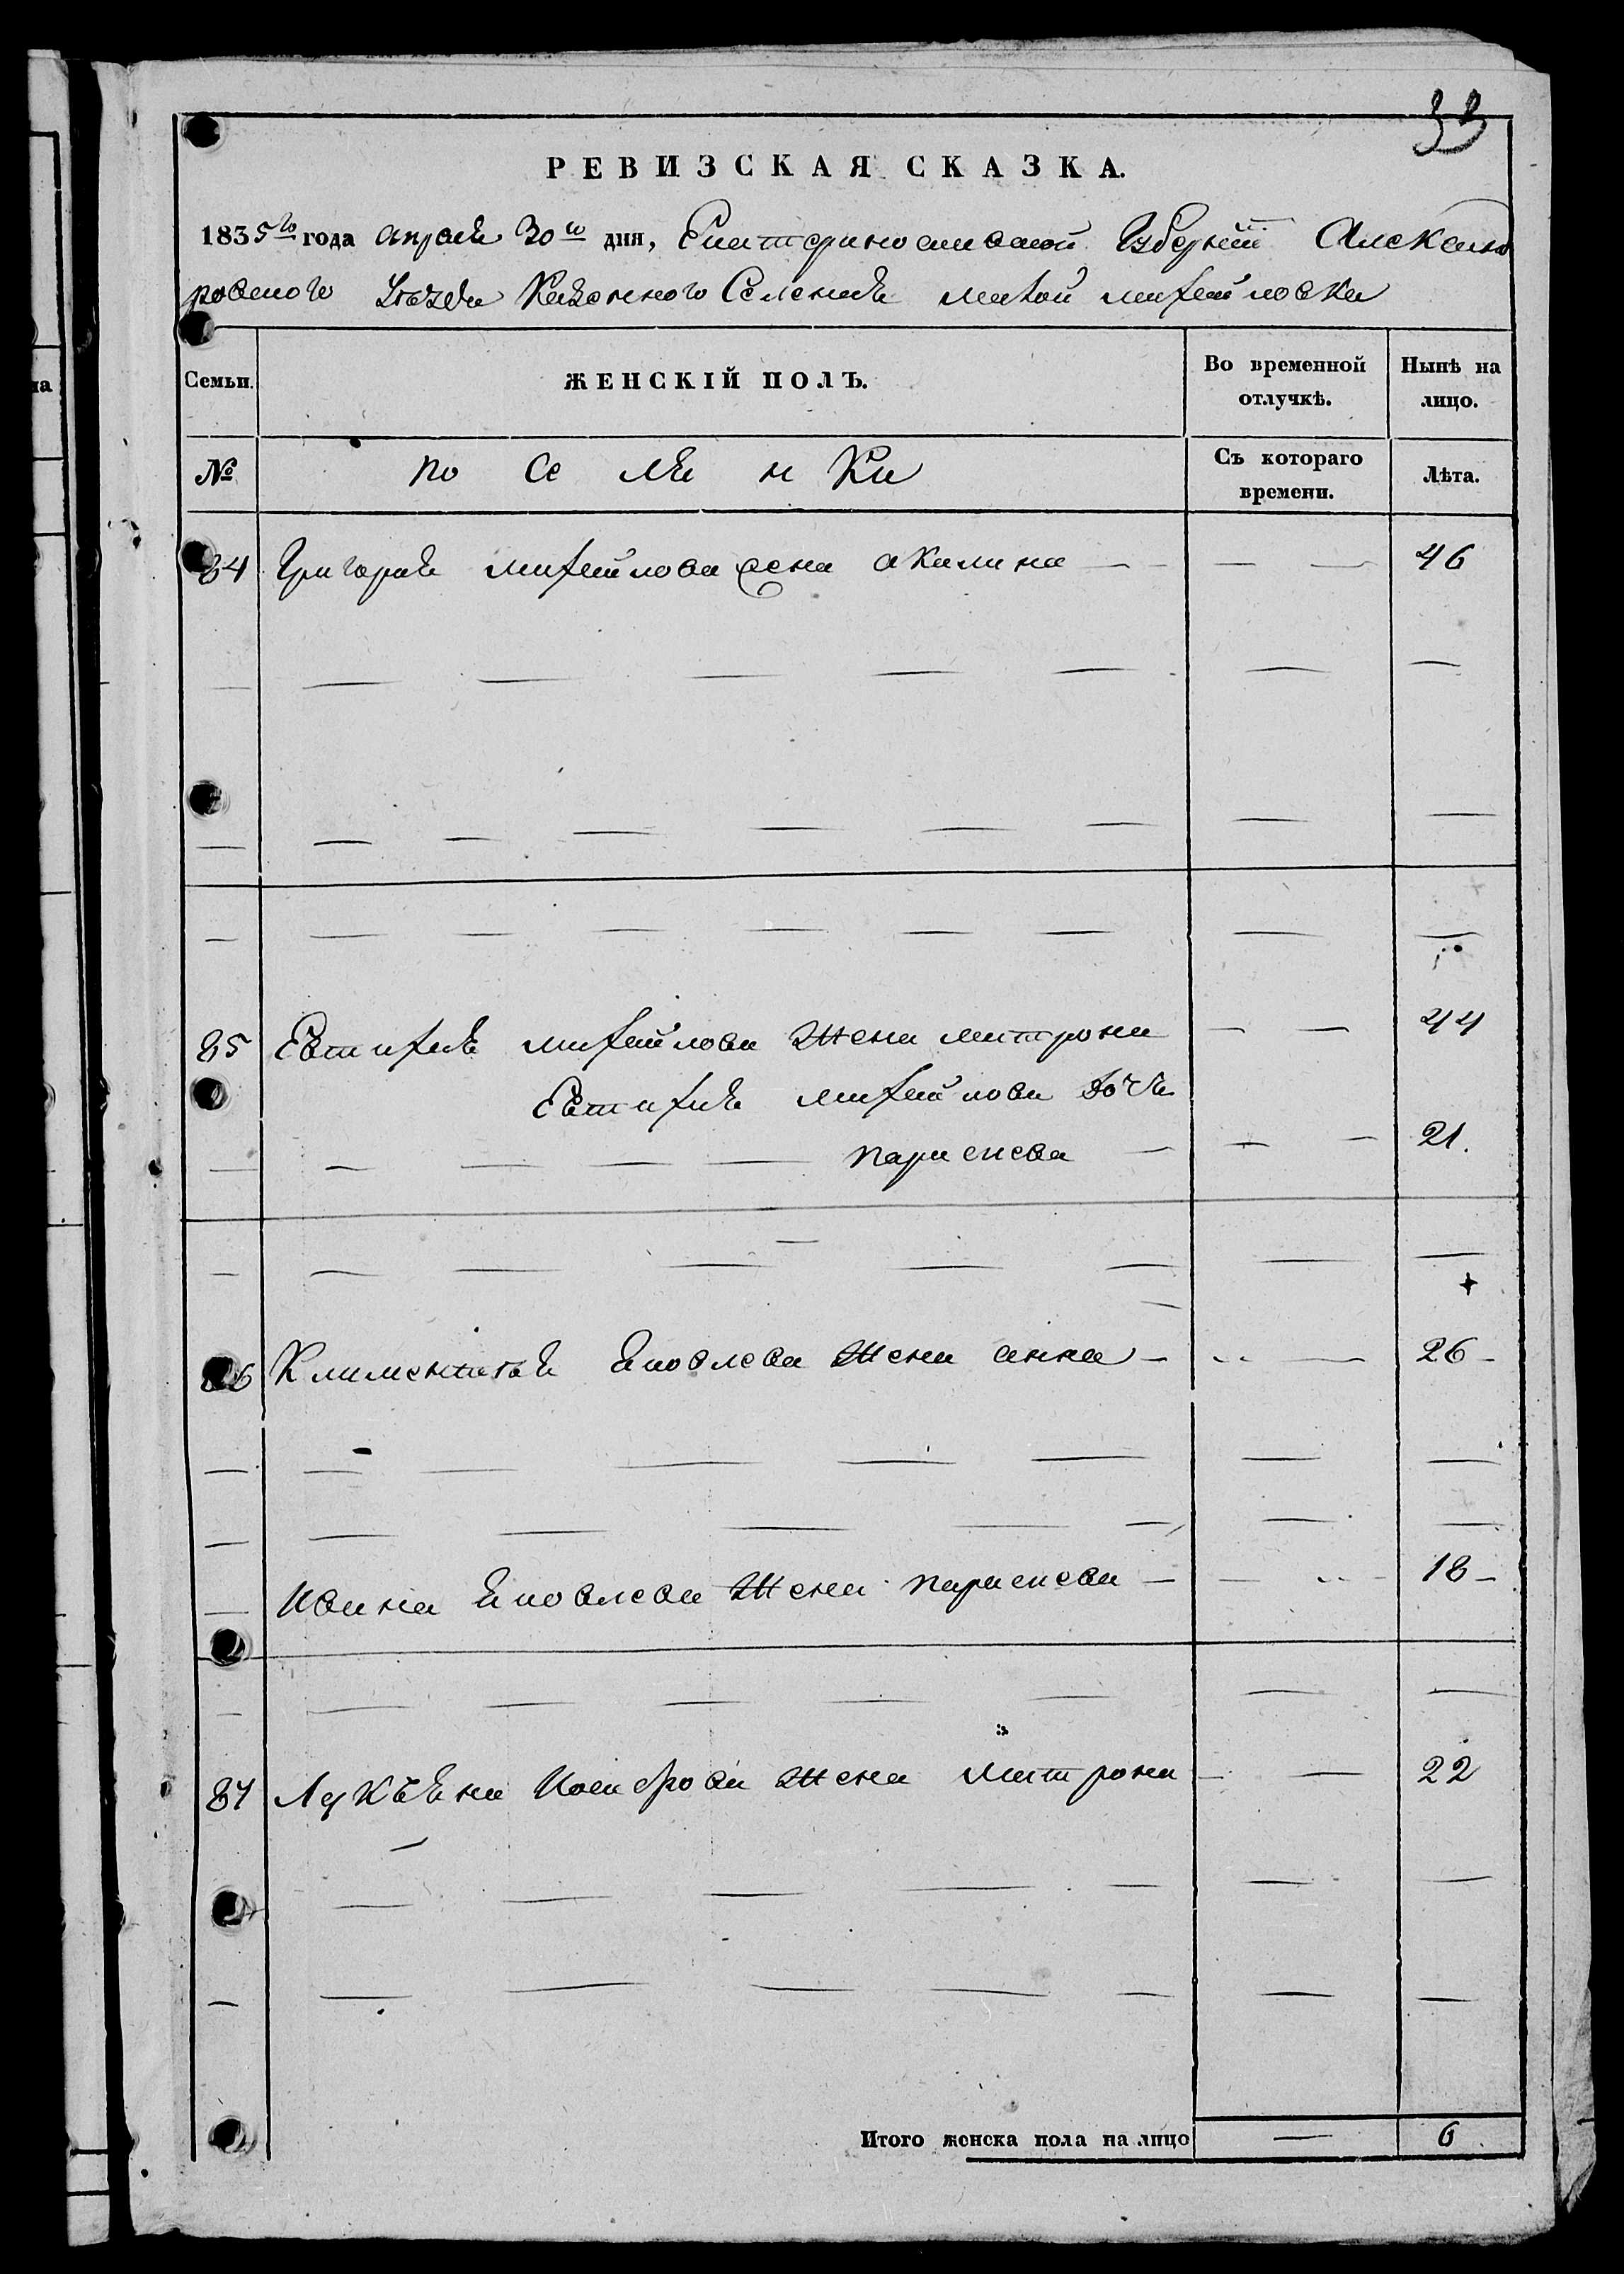 33
РЕВИЗСКАЯ СКАЗКА.
1835го года апреля 30го дня, Екатеринославской Губернии Александ
ровского Уезда Казенного Селения малой михайловки
Семьи. ЖЕНСКІЙ ПОЛЪ. Во временной отлучкѣ. Нынѣ на лицо.
№ по се ля н ки Съ котораго времени. Лѣта.
84 Григория михайлова жена акилина — — — 46
— — — — — — — —
— — — — — — — — —
— — — — — — — — —
85 Евтифия михайлова жена матрона — — 44
Евтифия михайлова дочь
— — — — — параскева — — — 21.
— — — — — — — —
86 Климентия Яковлева жена анна — — 26 —
— — — — — — — —
— — — — — — — —
— Ивана Яковлева жена параскева — — — 18 —
— — — — — — — —
87 Лукьяна жена матрона — — 22
— — — — — — —
— — — — — — — —
Итого женска пола на лицо — 6